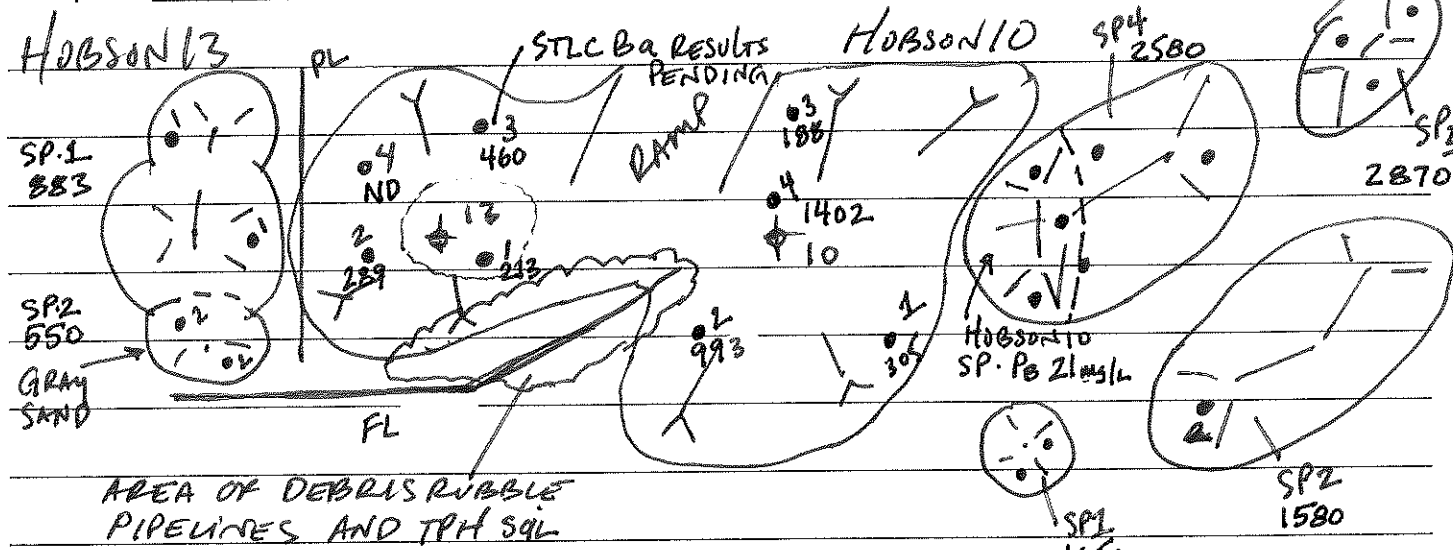 HOBSON 13
PL
STLC Ba RESULTS
PENDING
HOBSON 10
SP4
2580
SP.1
883
4
ND
3
460
RAMP
3
188
SP3
2870
13
4
1402
10
2
289
1
SP.2
550
2
2
GRAY
SAND
2
993
1
305
HOBSON 10
SP. PB 21mg/L
FL
2
AREA OF DEBRIS RUBBLE
PIPELINES AND TPH SOIL
SP1
SP2
1580